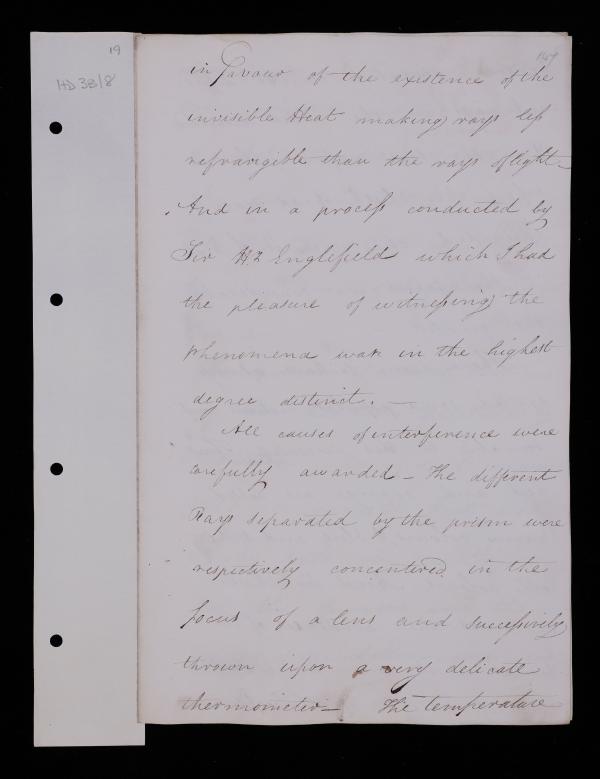 19
HD 38/8
in favour of the existence of the
invisible Heat making rays less
refrangible than the rays of light –
And in a process conducted by
Sir H. Englefield which I had
the pleasure of witnessing the
phenomena was in the highest
degree distinct. —
All causes of interference were
carefully awarded – The different
Rays separated by the prism were
respectively concentered in the
focus of a lens and successively
thrown upon a very delicate
thermometer – The temperature